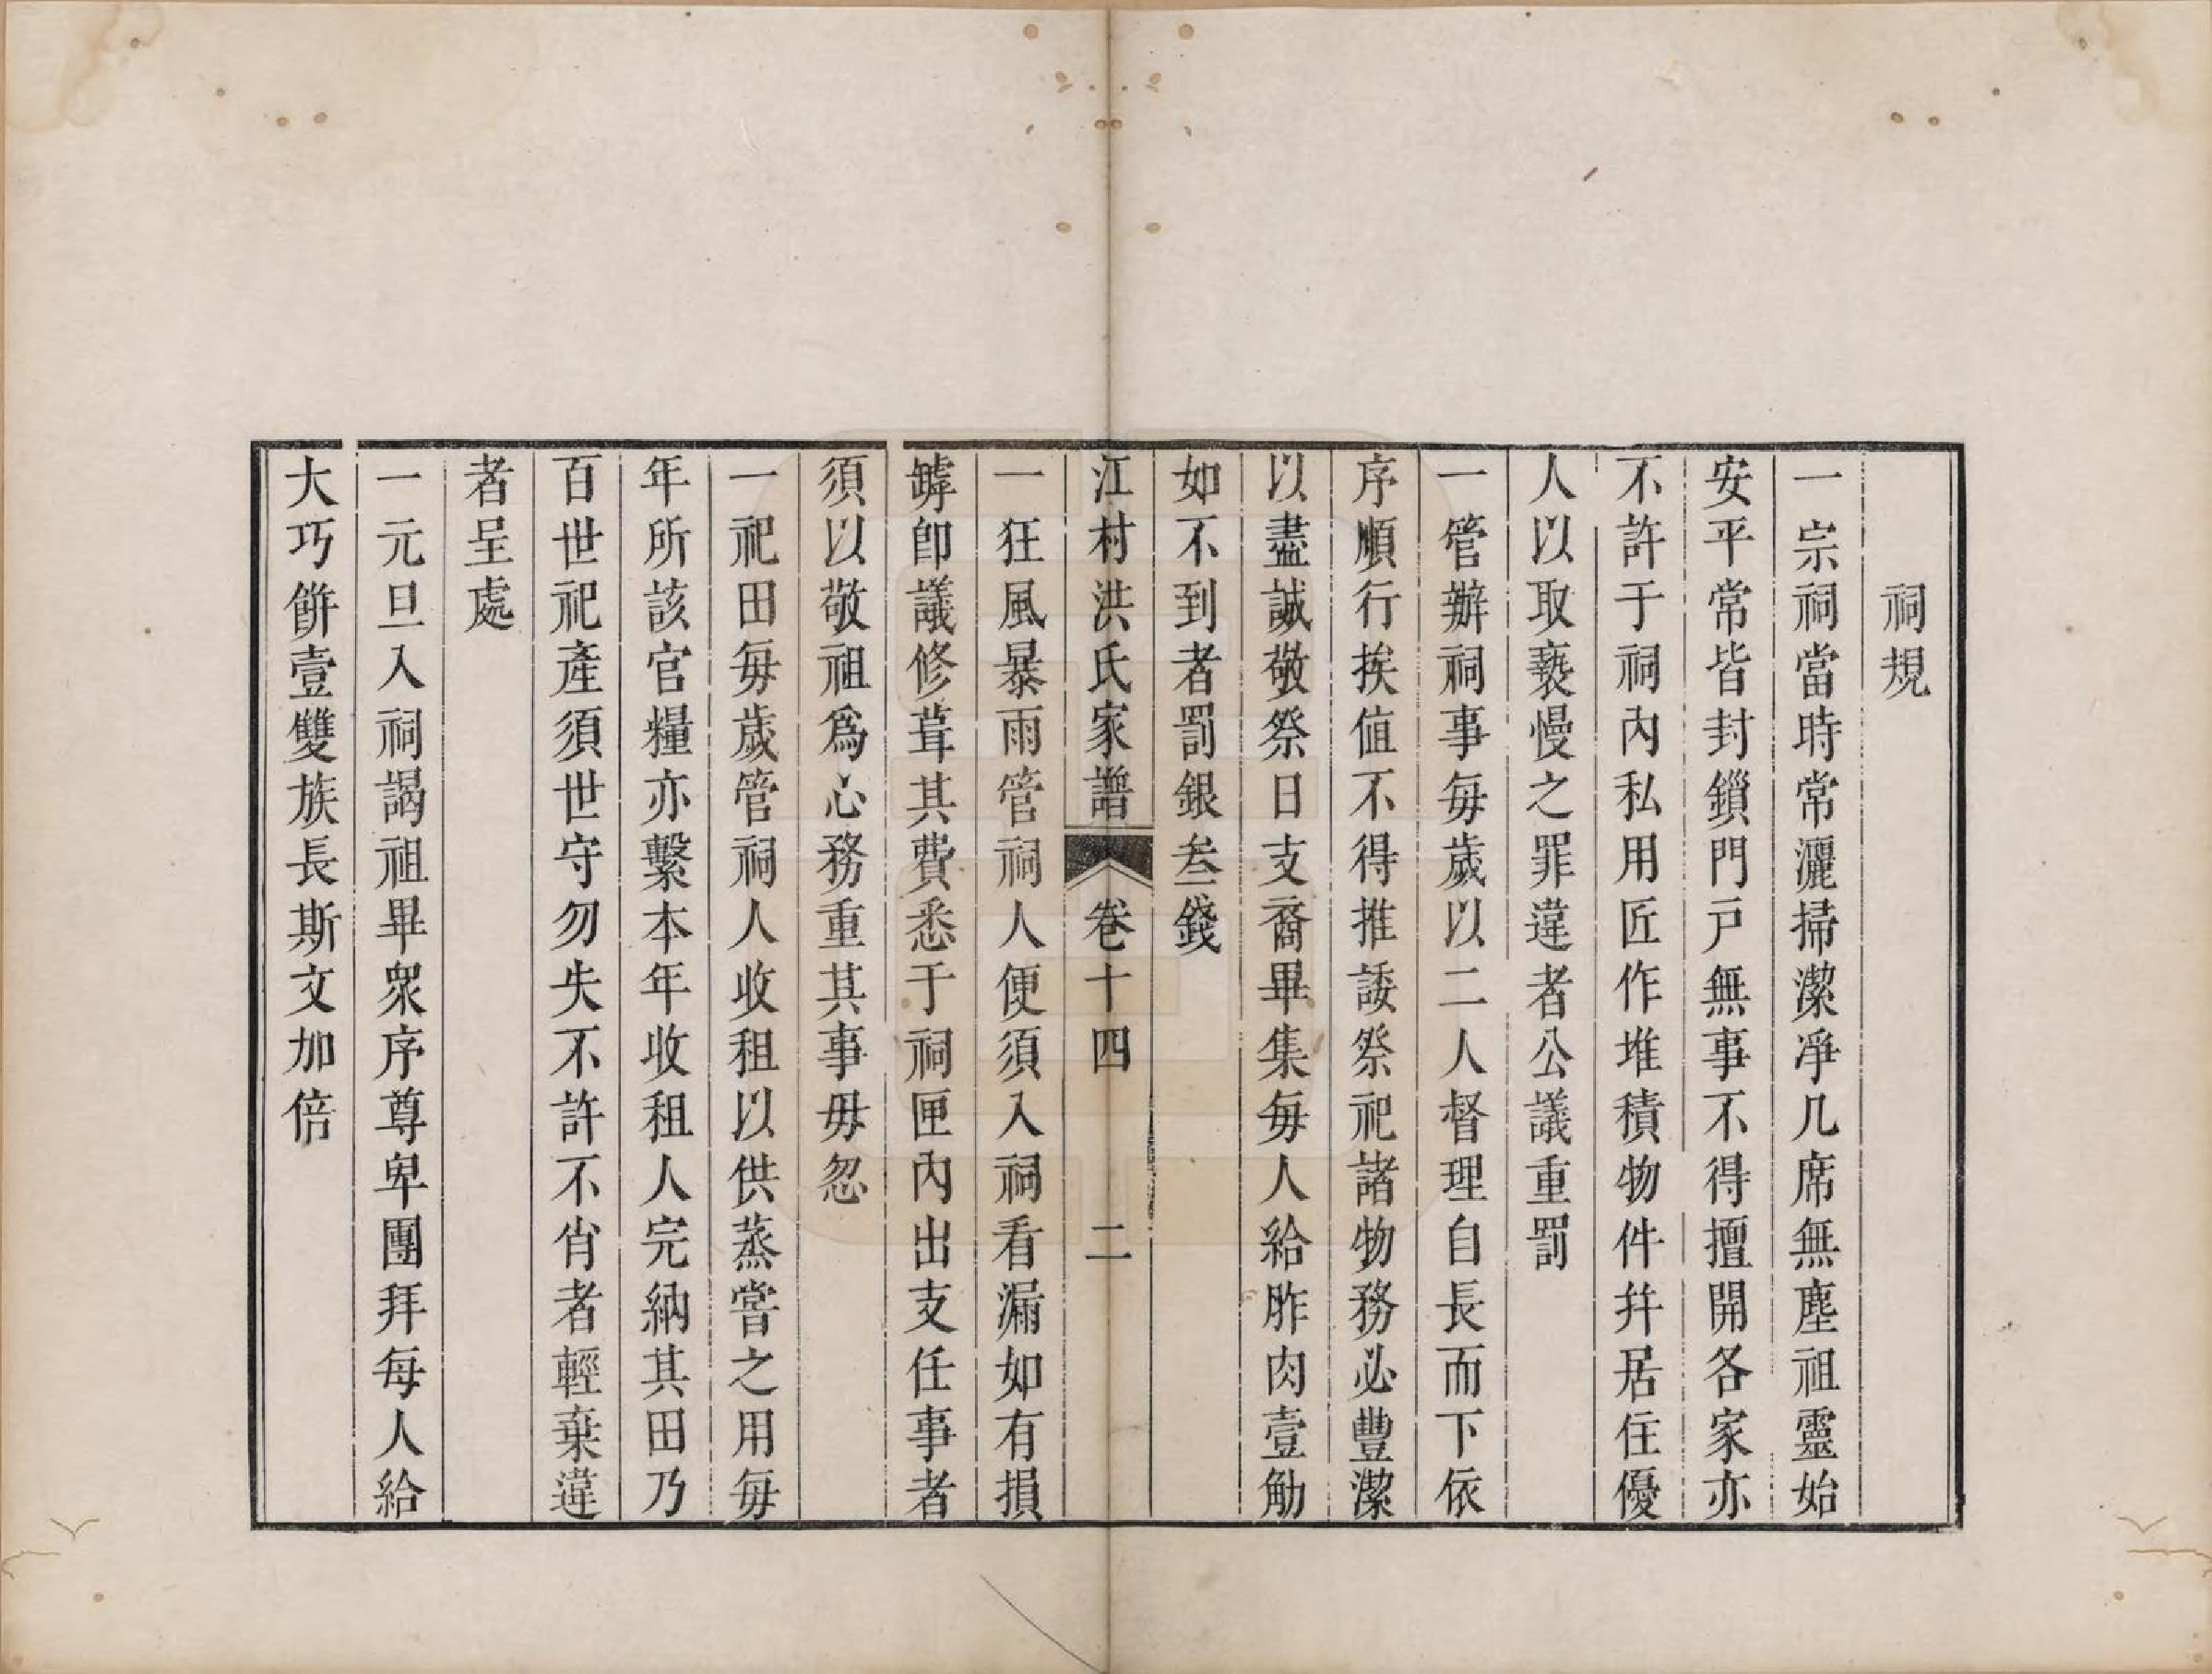 祠規
一宗祠當時常灑掃潔凈几席無塵祖靈始
安平常皆封鎖門戶無事不得擅開各家亦
不許于祠內私用匠作堆積物件幷居住優
人以取褻慢之罪違者公議重罰
一管辦祠事每歲以二人督理自長而下依
序順行挨值不得推諉祭祀諸物務必豐潔
以盡誠敬祭日支裔畢集每人給胙肉壹觔
如不到者罰銀叁錢
江村洪氏家譜 卷十四 二
一狂風暴雨管祠人便須入祠看漏如有損
罅卽議修葺其費悉于祠匣內出支任事者
須以敬祖爲心務重其事毋忽
一祀田每歲管祠人收租以供蒸嘗之用每
年所該官糧亦繫本年收租人完納其田乃
百世祀產須世守勿失不許不肖者輕棄違
者呈處
一元旦入祠謁祖畢衆序尊卑團拜每人給
大巧餅壹雙族長斯文加倍